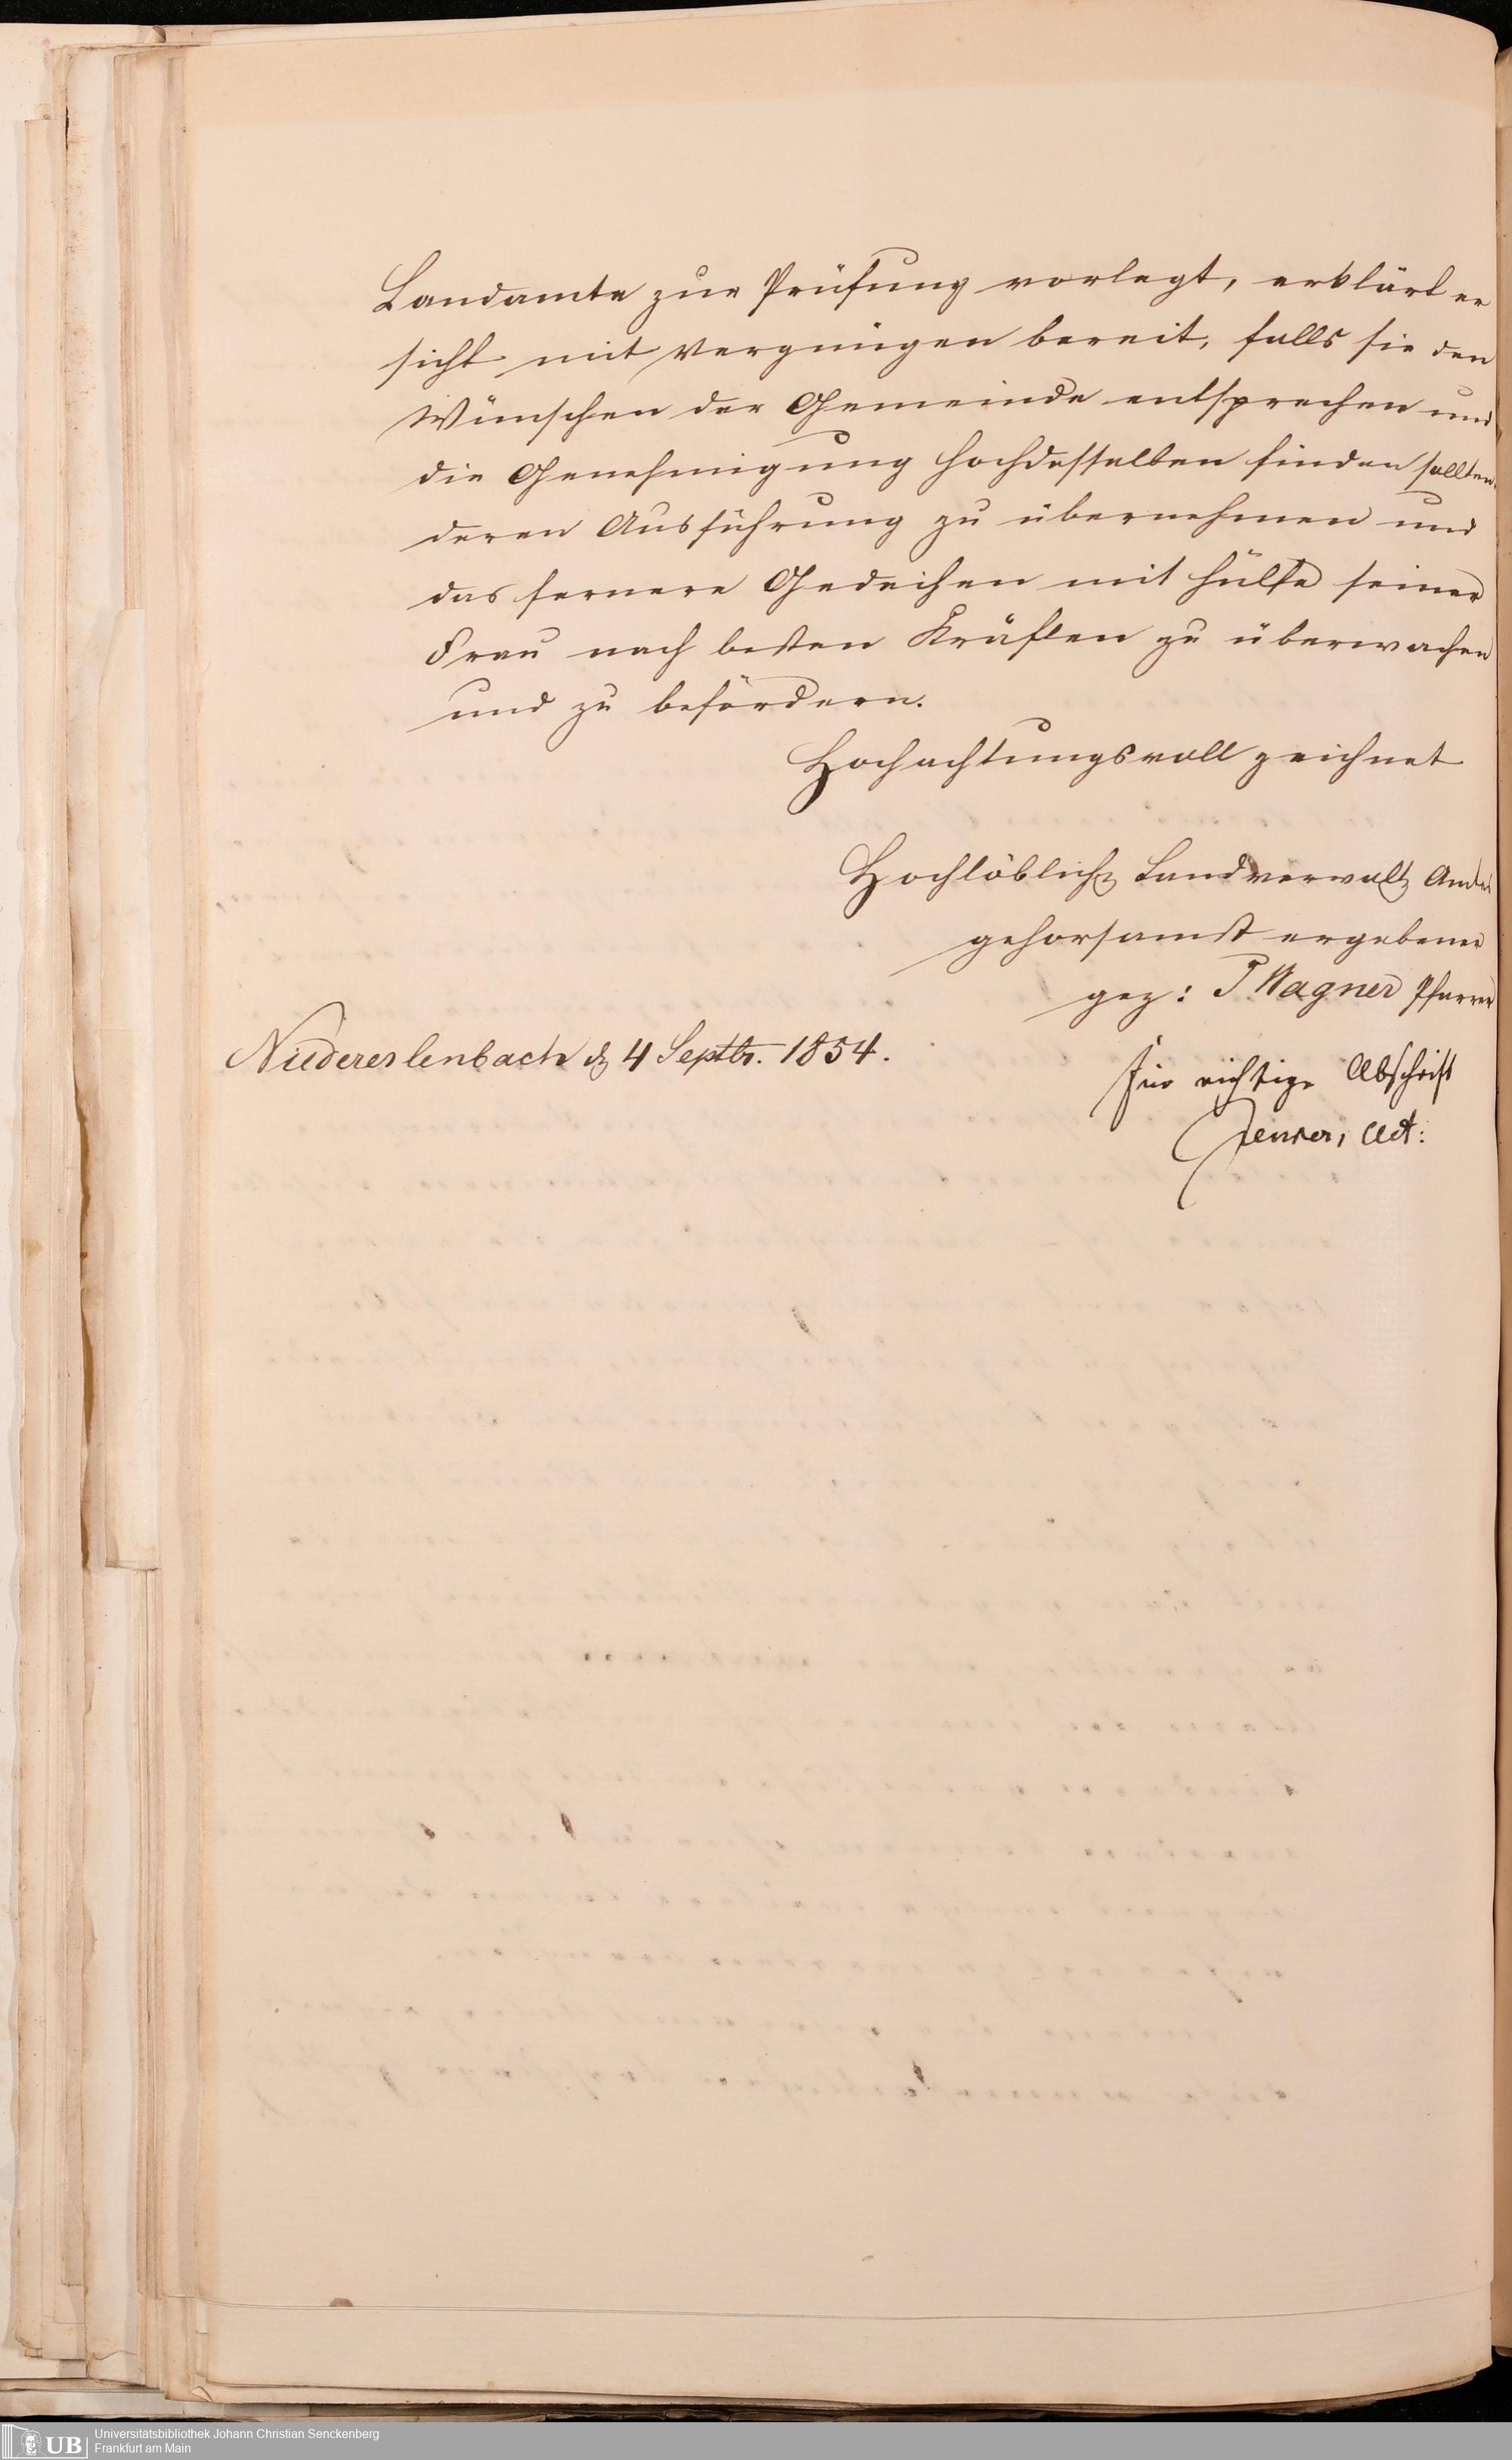 Landamte zur Prüfung vorlegt, erklärt er
sich mit Vergnügen bereit, falls sie den
Wünschen der Gemeinde entsprechen und
die Genehmigung Hochdesselben finden sollten,
deren Ausführung zu übernehmen und
das fernere Gedeihen mit Hülfe seiner
Frau nach besten Kräften zu überwachen
und zu befördern.
Hochachtungsvoll zeichnet
Hochlöblich Landverwalt Amtes
gehorsamst ergebener
gez: P Wagner Pfarrer
Niedererlenbach d 4 Septbr. 1854.
Für richtige Abschrift
Act:
Universitätsbibliothek Johann Christian Senckenberg
UB
Frankfurt am Main